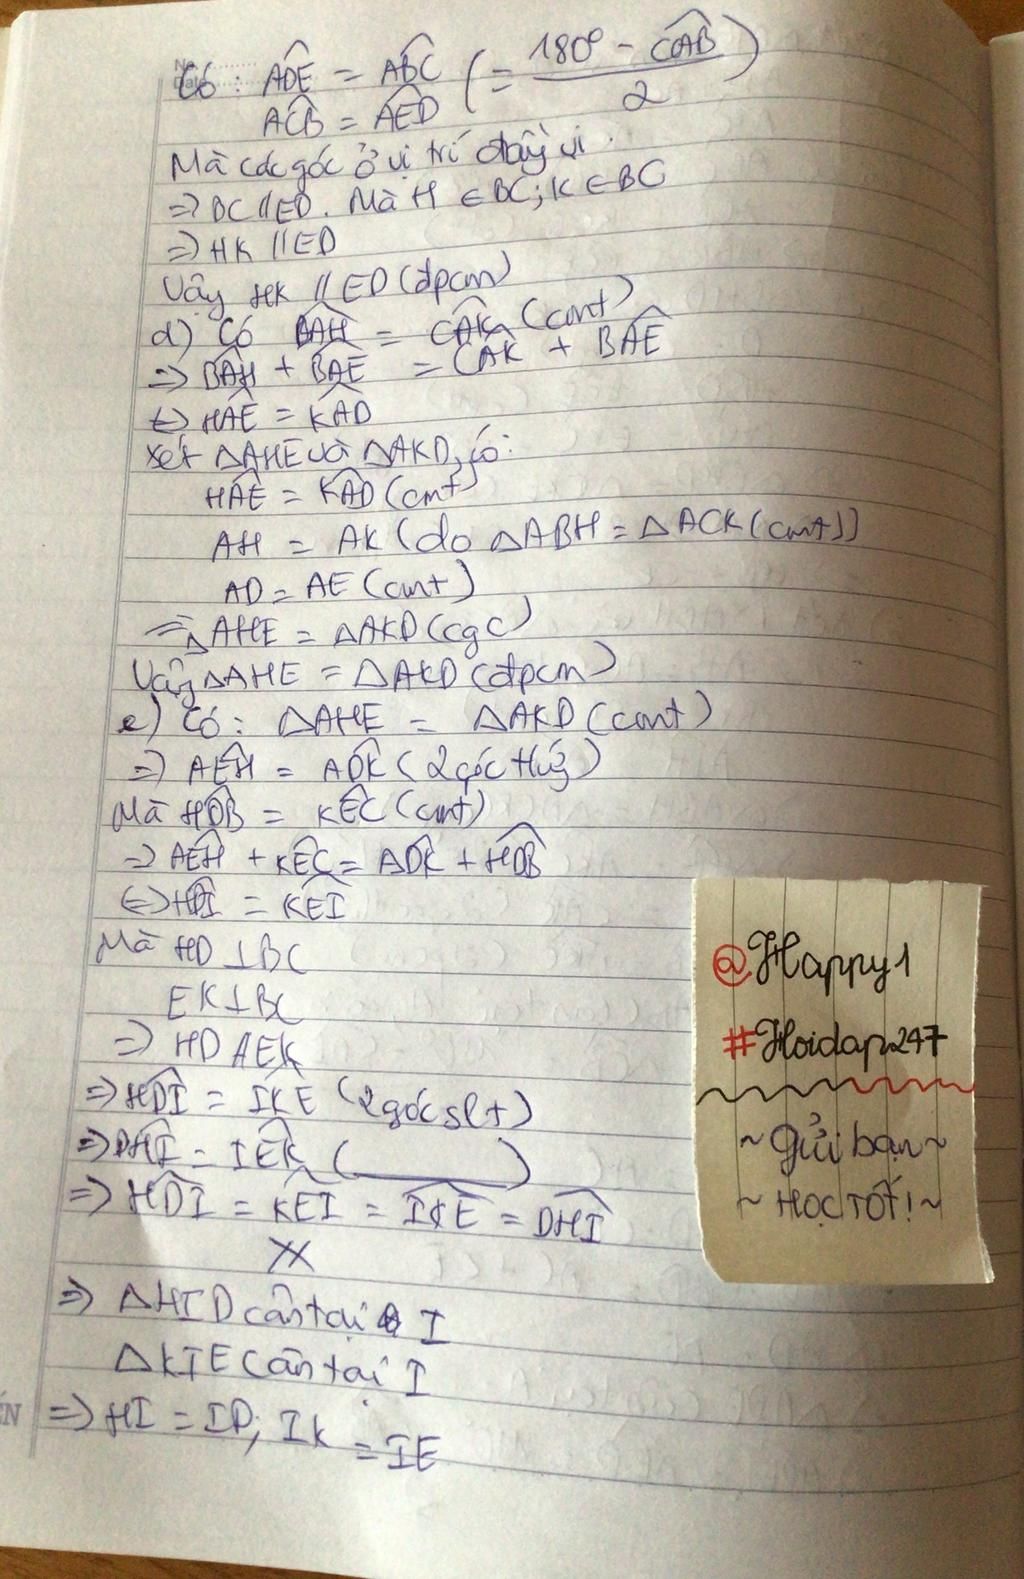 Có : ADE^ = ABC^ (= (180° - CAB^)/2)
ACB^ = AED^
Mà các góc ở vị trí đồng vị.
=> BC // ED. Mà H ∈ BC; K ∈ BC
=> HK // ED
Vậy HK // ED (đpcm)
d) Có BAH^ = CAK^ (cmt)
=> BAH^ + BAE^ = CAK^ + BAE^
<=> HAE^ = KAD^
Xét ΔAHE và ΔAKD, có:
HAE^ = KAD^ (cmt)
AH = AK (do ΔABH = ΔACK (cmt))
AD = AE (cmt)
=> ΔAHE = ΔAKD (cgc)
Vậy ΔAHE = ΔAKD (đpcm)
e) Có: ΔAHE = ΔAKD (cmt)
=> AEH^ = ADK^ (2 góc tứ)
Mà HDB^ = KEC^ (cmt)
=> AEH^ + KEC^ = ADK^ + HDB^
<=> HDI^ = KEI^
Mà HD ⊥ BC
EK ⊥ BC
=> HD // EK
=> HDI^ = IKE^ (2 góc slt)
=> DHI^ = IEK^ (______)
=> HDI^ = KEI^ = IKE^ = DHI^
=> ΔHID cân tại I
ΔKIE cân tại I
=> HI = ID; IK = IE
@Happy1
#Hoidap247
~ Gửi bạn ~
~ HỌC TỐT! ~